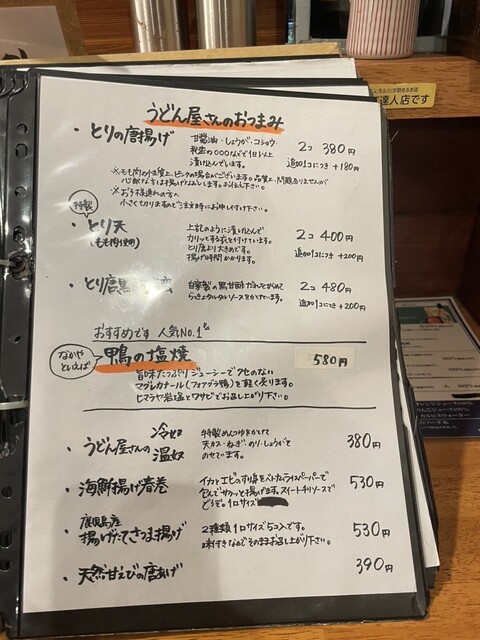 うどん屋さんのおつまみ
・とりの唐揚げ
甘醤油・しょうが・コショウ
秘密の〇〇〇などで1日以上
漬け込んでいます。
2コ 380円
追加1コにつき+180円
※もも肉の性質上、ピンクの場合がございます。品質上、問題ありませんが
心配な方は揚げなおしします。お伝え下さい。
※お子様連れの方へ
小さく切りますのでご注文時にお申し付け下さい。
特製
・とり天
(もも肉使用)
上記のように漬け込んで
カリッとする衣を付けています。
とり唐より大きめです。
揚げ時間かかります。
2コ 400円
追加1コにつき+200円
・とり唐黒
自家製の黒甘酢
らっきょタルタルソースをかけています。
2コ 480円
追加1コ+200円
おすすめです 人気No.1
なかや
といえば
鴨の塩焼
580円
旨味たっぷりジューシーでクセのない
マグレカナール(フォアグラ鴨)を軽く炙ります。
ヒマラヤ岩塩とワサビでお召し上がり下さい。
・うどん屋さんの
冷奴
温奴
特製めんつゆをかけて
天カス・ねぎ・のり・しょうがと
のせています。
380円
・海鮮揚げ春巻
イカとエビのすり身をベトナムライスペーパーで
包んでサクッと揚げます。スイートチリソースで
どうぞ。1口サイズ
530円
鹿児島産
・揚げたてさつま揚げ
2種類1口サイズ5コ入です。
味付きなのでそのままお召し上がり下さい。
530円
・天然甘えびの唐あげ
390円
達人店です